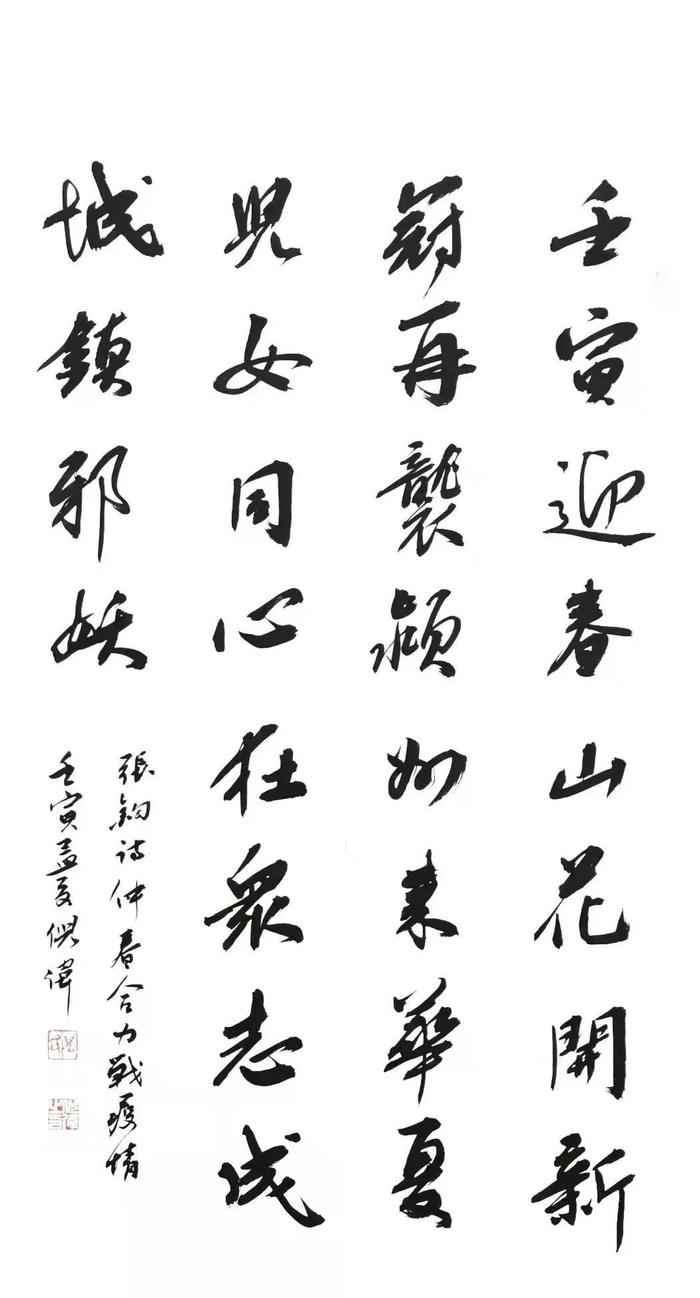 壬寅迎春山花開新
冠再襲頻如来華夏
兒女同心在衆志成
城鎮邪妖
張鈞诗仲春合力戰疫情
壬寅孟夏倪偉